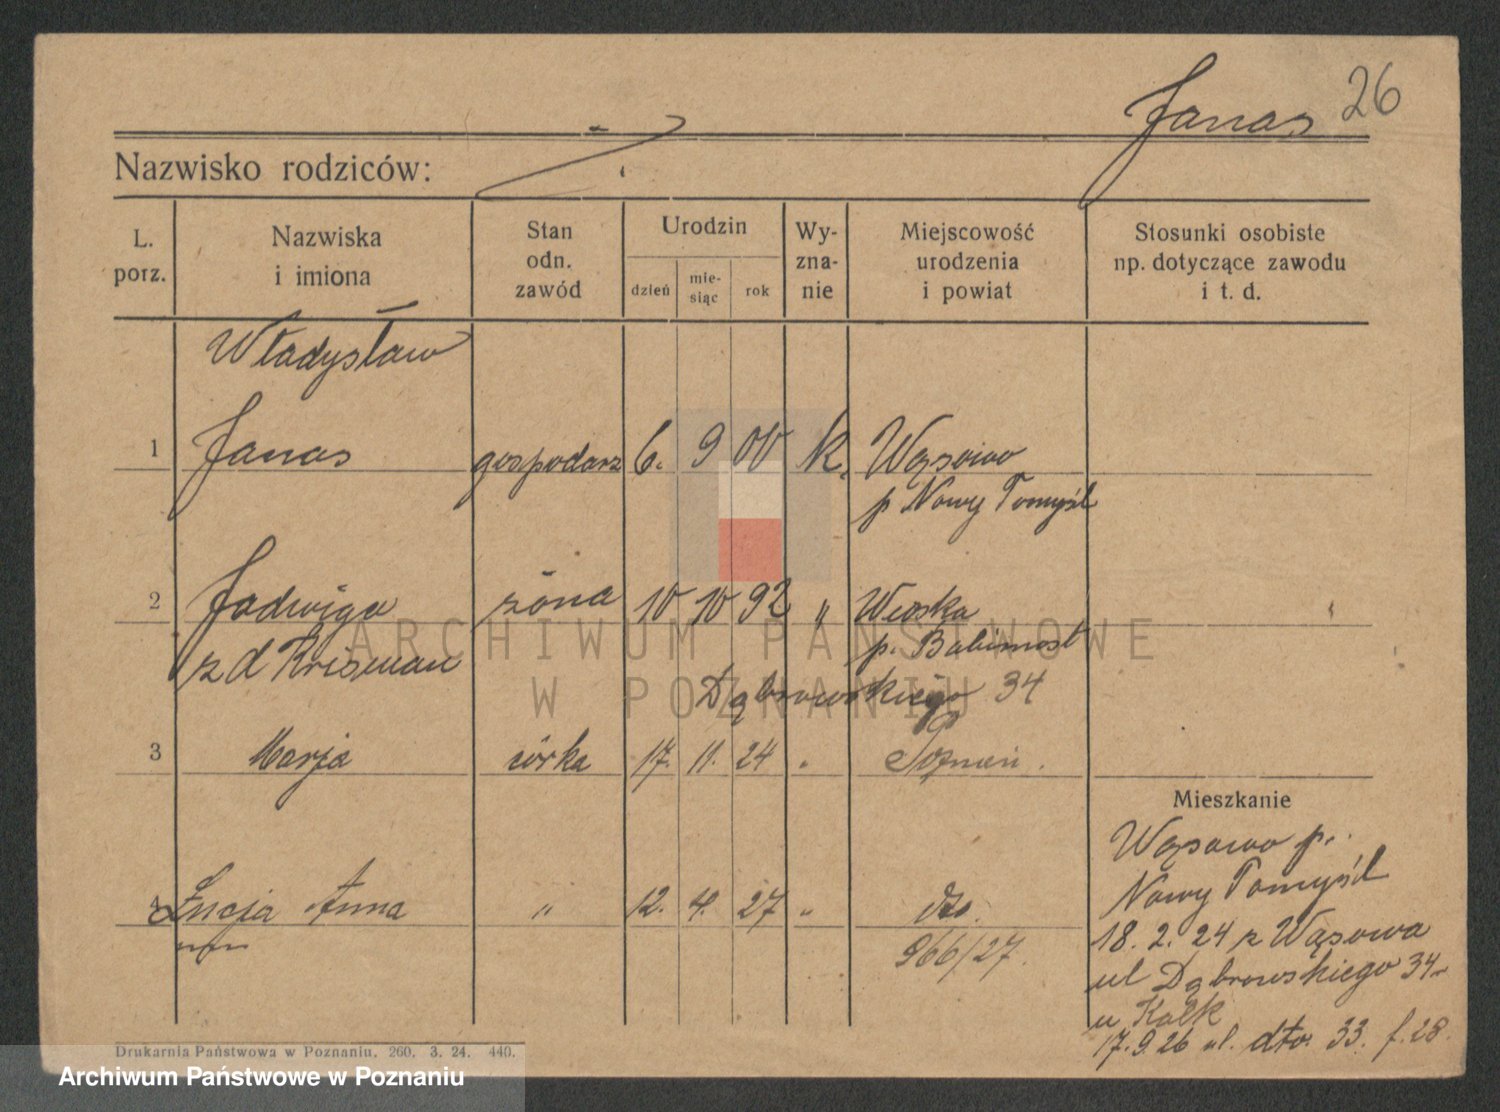 Janas 26
Nazwisko rodziców:
L. porz.
Nazwiska i imiona
Stan odn. zawód
Urodzin
dzień
mie-
siąc
rok
Wy-
zna-
nie
Miejscowość urodzenia i powiat
Stosunki osobiste np. dotyczące zawodu i t. d.
Władysław
1 Janas gospodarz 6. 9 00 k. Wąsowo
p Nowy Tomyśl
2 Jadwiga żona 10 10 92 " Wioska
z d Krisman p. Babimost
Dąbrowskiego 34
3 Marja córka 17. 11. 24 " Poznań.
4 Łucja Anna " 12. 4. 27 " dto.
966/27.
Mieszkanie
Wąsowo p.
Nowy Tomyśl
18. 2. 24 z Wąsowa
ul Dąbrowskiego 34
u Kalk
17.9.26 ul. dto. 33. f. 28.
Drukarnia Państwowa w Poznaniu. 260. 3. 24. 440.
ARCHIWUM PAŃSTWOWE
W POZNANIU
Archiwum Państwowe w Poznaniu